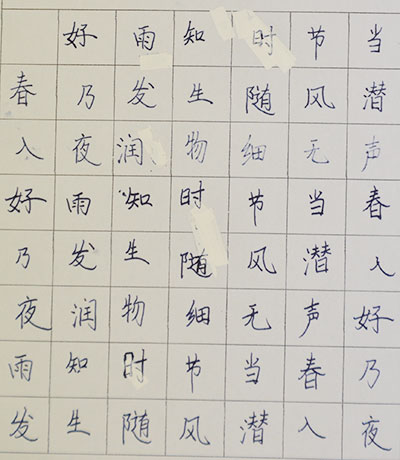 好雨知时节当
春乃发生随风潜
入夜润物细无声
好雨知时节当春
乃发生随风潜入
夜润物细无声好
雨知时节当春乃
发生随风潜入夜